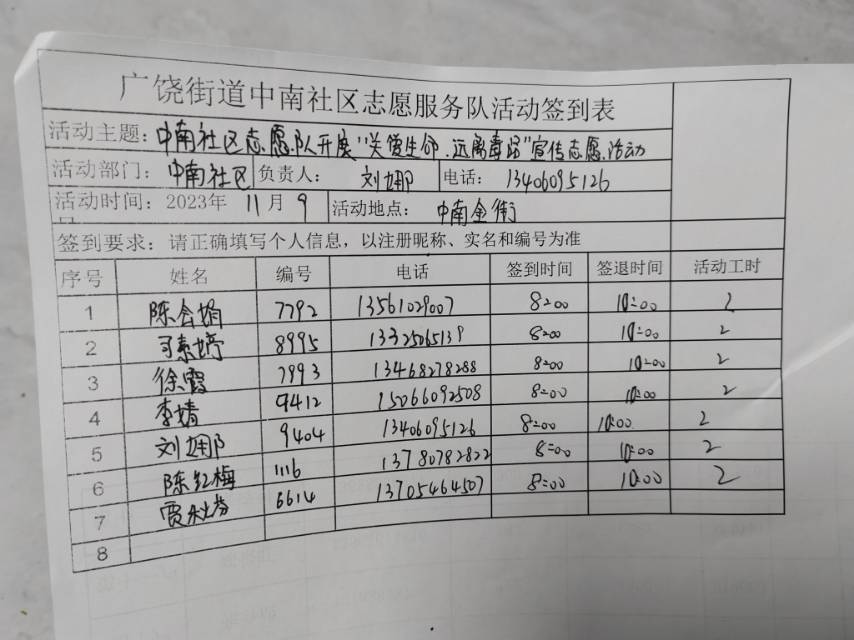 广饶街道中南社区志愿服务队活动签到表
活动主题：中南社区志愿队开展"关爱生命.远离毒品"宣传志愿活动
活动部门：中南社区 负责人：刘娜 电话：13406095126
活动时间：2023年 11月 9 活动地点：中南金街
签到要求：请正确填写个人信息，以注册昵称、实名和编号为准
序号 姓名 编号 电话 签到时间 签退时间 活动工时
1 陈会娟 7792 13561029007 8:00 10:00 2
2 素婷 8995 13325065139 8:00 10:00 2
3 徐霞 7993 13468278288 8:00 10:00 2
4 李婧 9412 15066092508 8:00 10:00 2
5 刘娜 9404 13406095126 8:00 10:00 2
6 陈红梅 1116 13780782822 8:00 10:00 2
7 贾秋芳 6614 13705464507 8:00 10:00 2
8